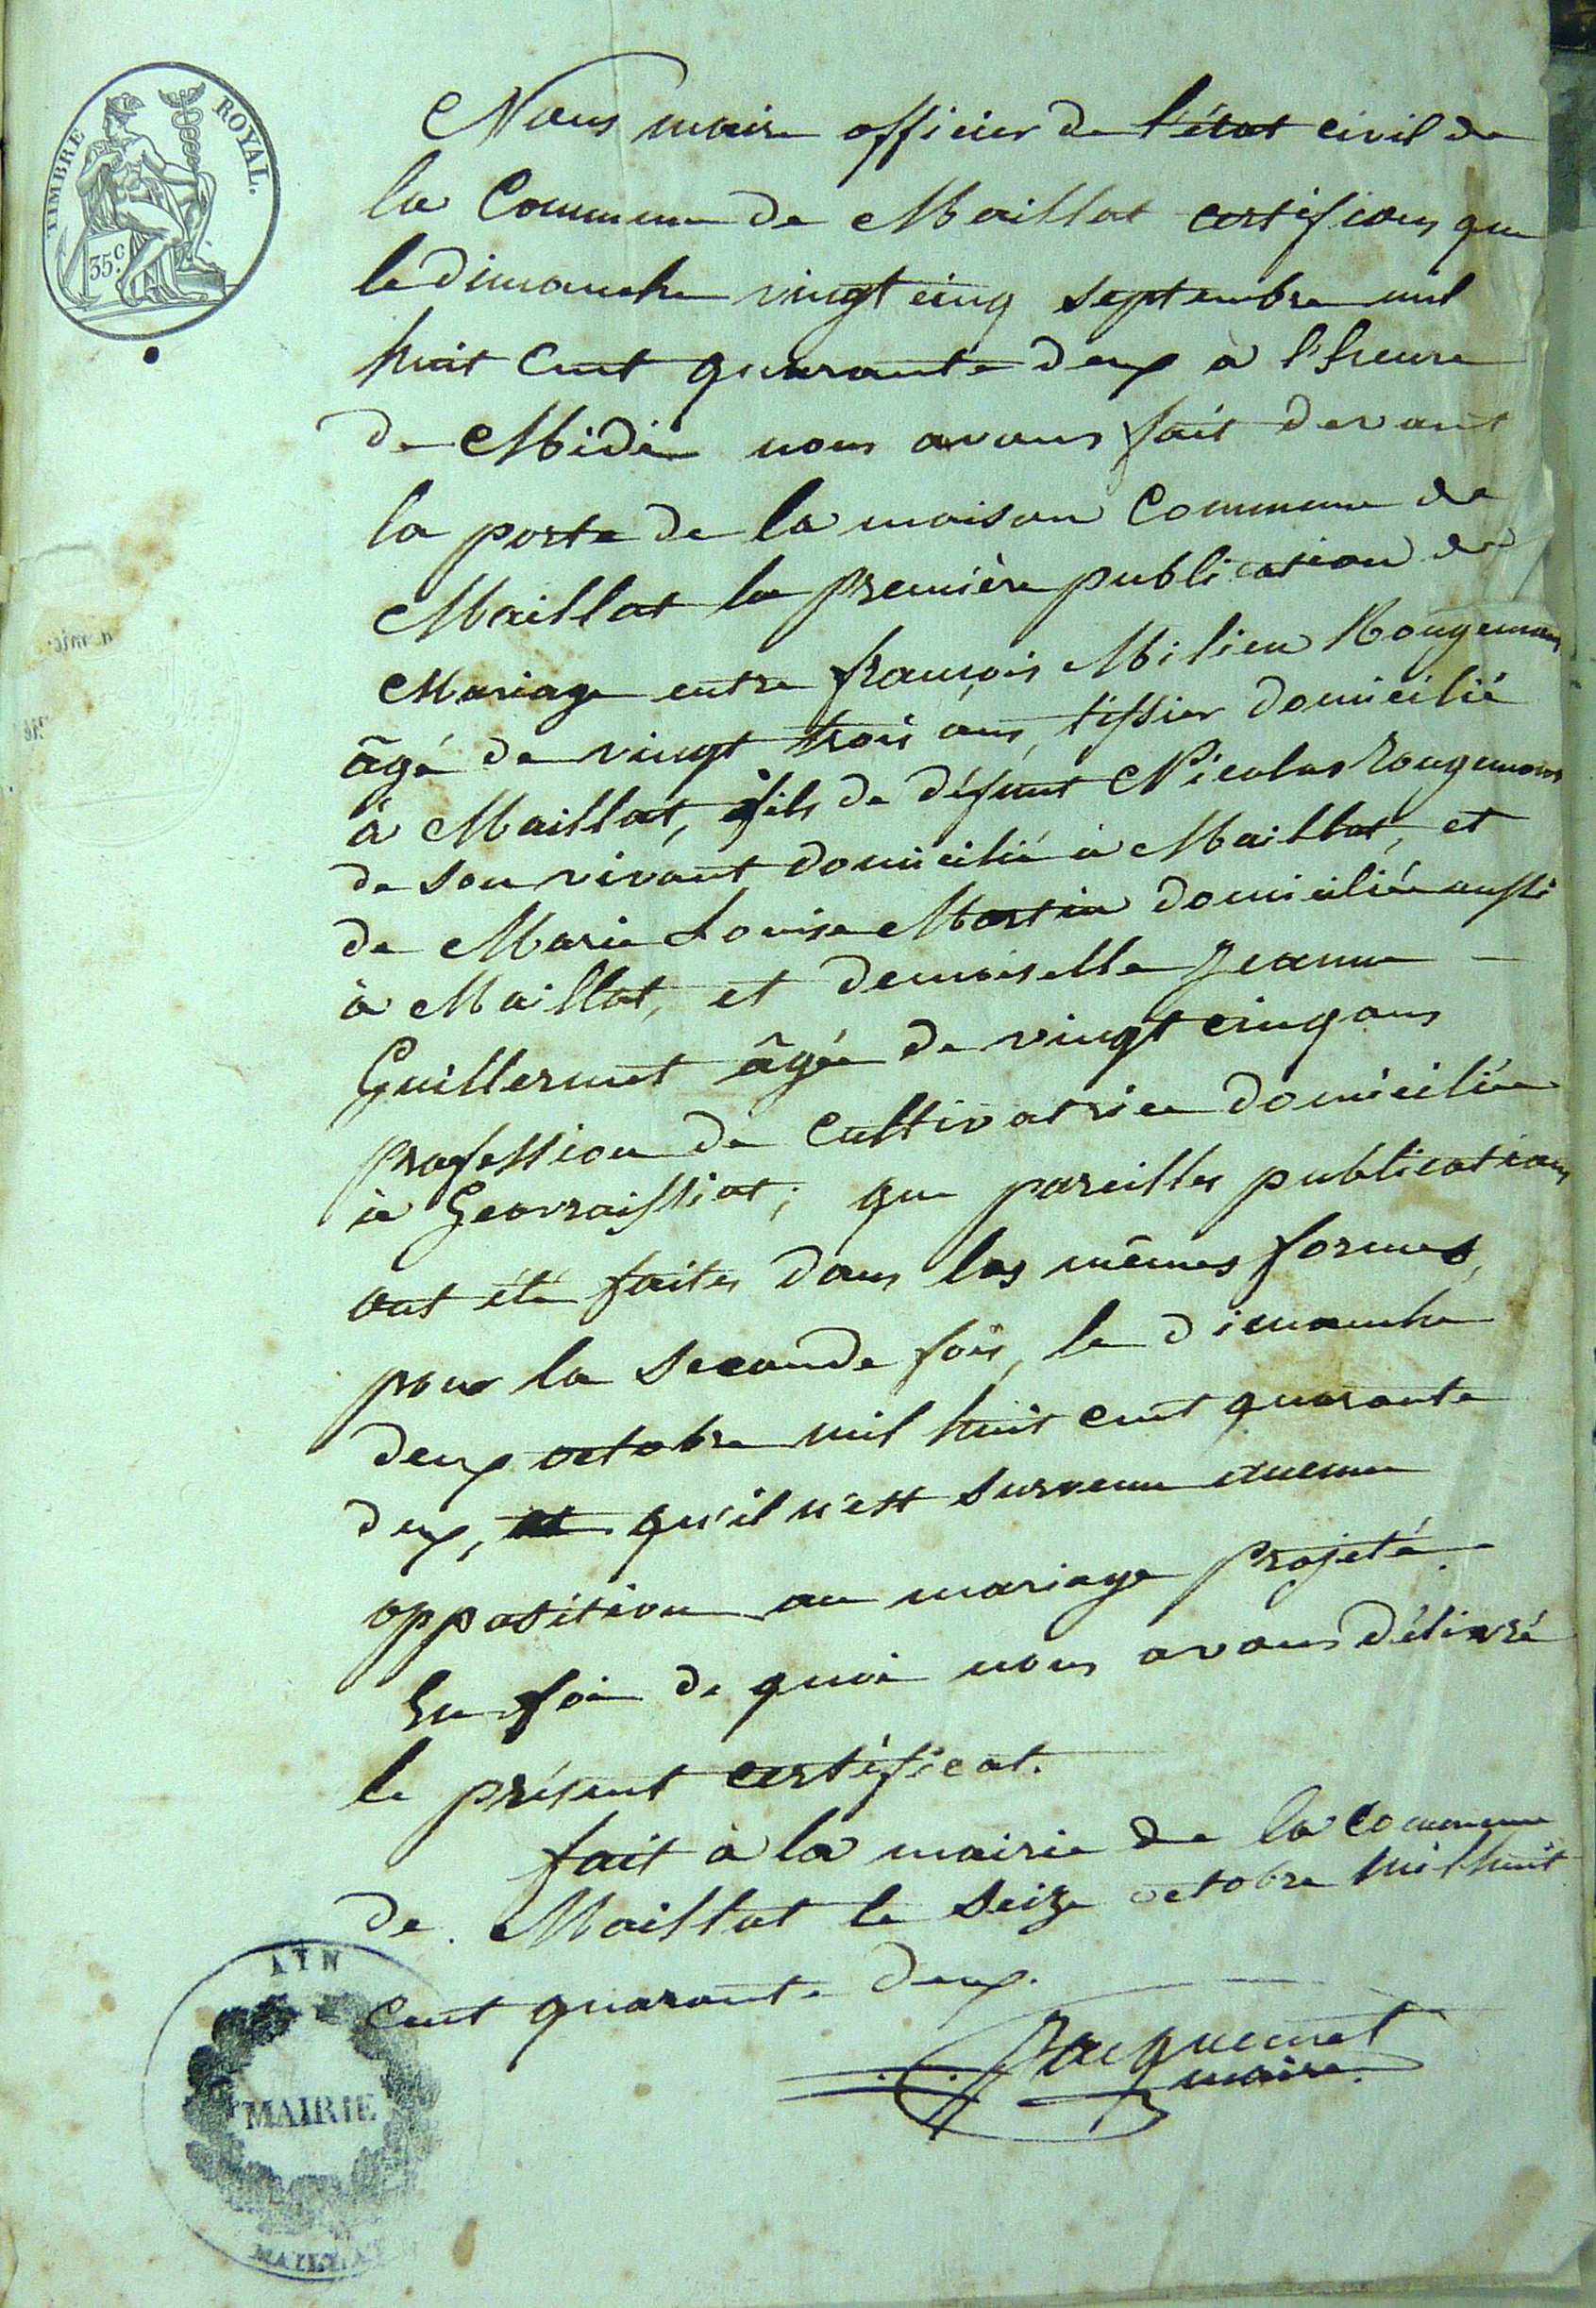 TIMBRE ROYAL.
35c.
Nous maire officier de l'état civil de
la Commune de Maillat certifions que
le dimanche vingt cinq septembre mil
huit cent quarante deux à l'heure
de Midi nous avons fait devant
la porte de la maison commune de
Maillat la première publication de
Mariage entre françois Milieu Rougemont
âgé de vingt trois ans, tissier domicilié
à Maillat, fils de défunt Nicolas Rougemont
de son vivant domicilié à Maillat, et
de Marie Louise Martin domiciliée aussi
à Maillat, et demoiselle Jeanne
Guillermet âgée de vingt cinq ans
profession de cultivatrice domiciliée
à Geovraissiat; que pareilles publications
ont été faites dans les mêmes formes,
pour la seconde fois, le dimanche
deux octobre mil huit cent quarante
deux, et qu'il n'est survenu aucune
opposition au mariage projeté.
En foi de quoi nous avons délivré
le présent certificat.
fait à la mairie de la commune
de Maillat le seize octobre mil huit
cent quarante deux.
Jacquemet
maire.
AIN
MAIRIE
MAILLAT